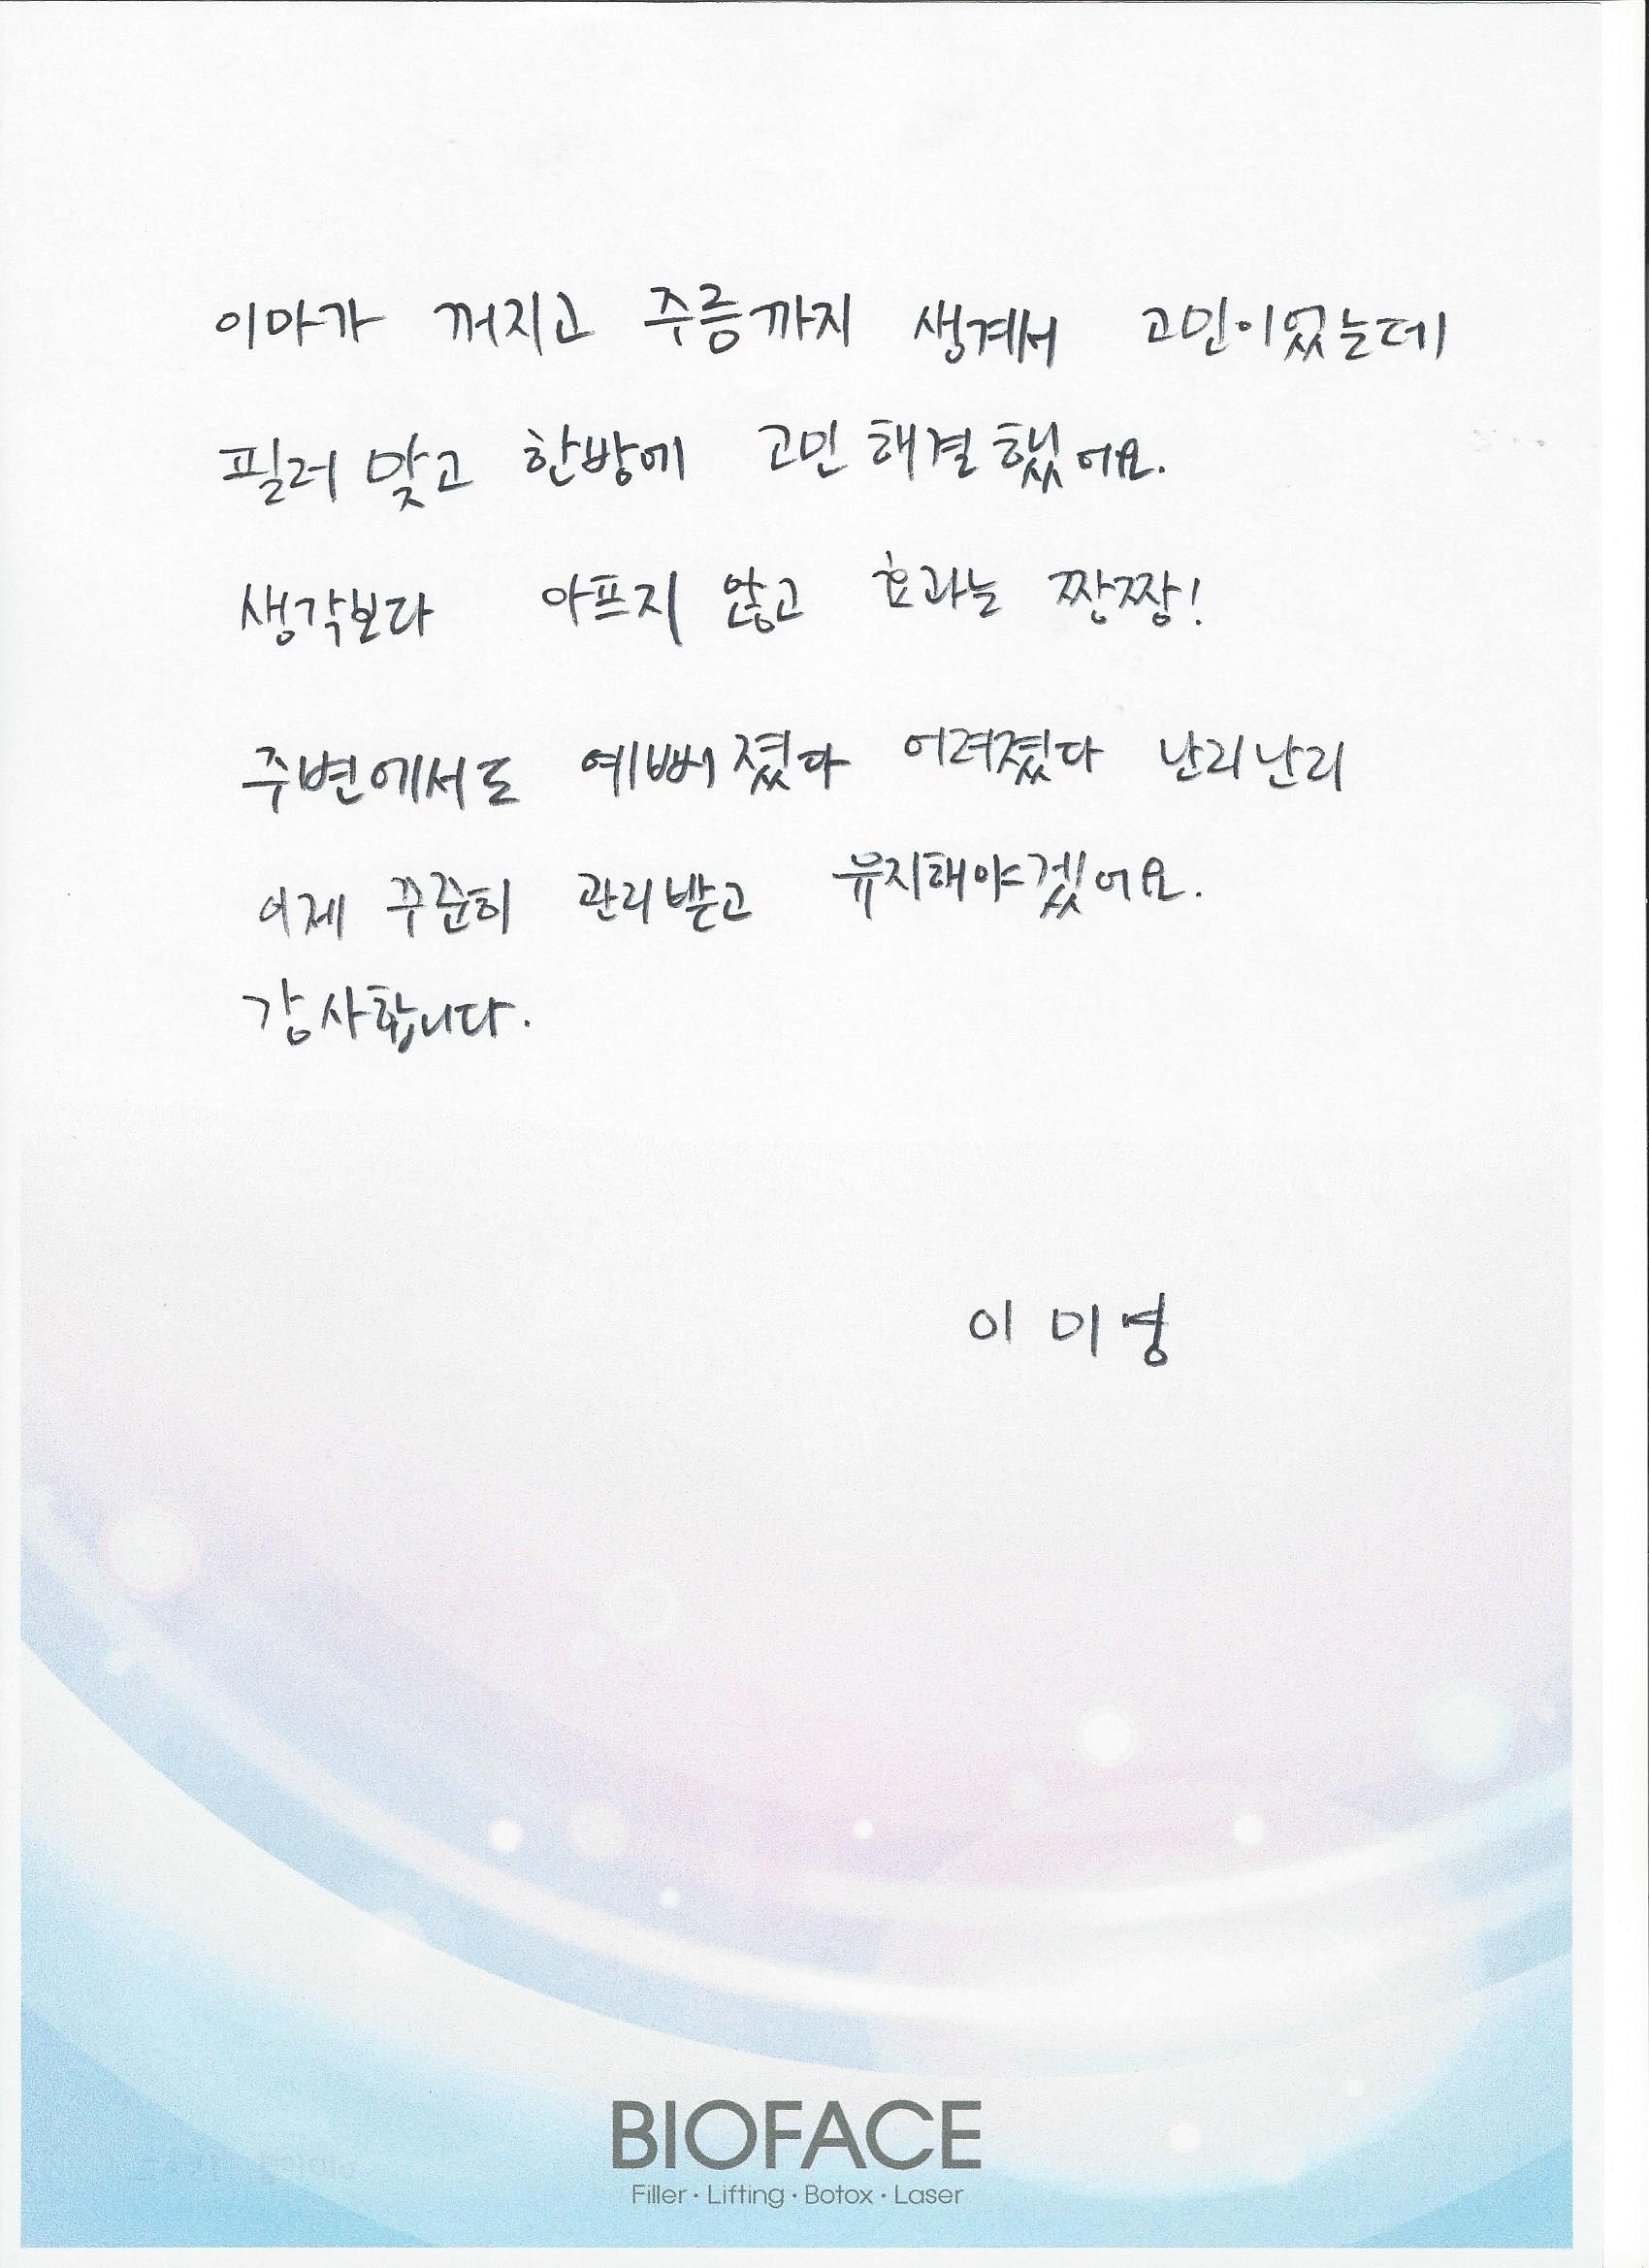 이마가 꺼지고 주름까지 생겨서 고민이었는데
필러 맞고 한방에 고민 해결 했어요.
생각보다 아프지 않고 효과는 짱짱!
주변에서도 예뻐졌다 어려졌다 난리난리
이제 꾸준히 관리받고 유지해야겠어요.
감사합니다.
이미영
BIOFACE
Filler · Lifting · Botox · Laser